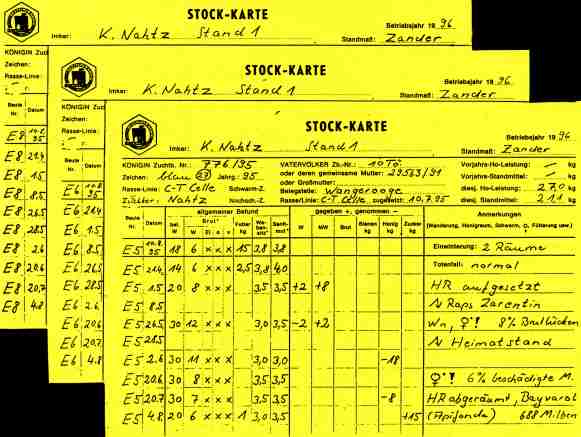 STOCK-KARTE
Betriebsjahr 19 96
Imker: K. Nahtz Stand 1
Standmaß: Zander
KÖNIGIN Zucht
Zeichen:
Rasse-Linie:
Beute Nr. Datum
E8
E8 21.4
E8 1.5
E8 8.5
E8 26.5
E8 28.5
E8 2.6
E8 20.6
E8 20.7
E8 4.8
STOCK-KARTE
Betriebsjahr 19 96
Imker: K. Nahtz Stand 1
Standmaß: Zander
KÖNIGIN Zuc
Zeichen:
Rasse-Linie:
Beute Nr. Datum
E6
E6 21.4
E6 1.5
E6 8.5
E6 26.5
E6 28.5
E6 2.6
E6 20.6
E6 20.7
E6 4.8
STOCK-KARTE
Betriebsjahr 19 96
Imker: K. Nahtz Stand 1
Standmaß: Zander
KÖNIGIN Zuchtb. Nr.: 776/95 VATERVÖLKER Zb.-Nr.: 10 Tö Vorjahrs-Ho-Leistung: kg
Zeichen: blau 27 Jahrg.: 95 oder deren gemeinsame Mutter: 29563/91 Vorjahrs-Standmittel: kg
oder Großmutter: diesj. Ho-Leistung: 27,0 kg
Rasse-Linie: C-T Celle Schwarm-Z. Belegstelle: Wangerooge diesj. Standmittel: 21,1 kg
Züchter: Nahtz Nachsch.-Z. Rasse/Linie: C-T. Celle zugesetzt: 10.7.95
Beute Nr. Datum allgemeiner Befund gegeben +, genommen – Anmerkungen
bel. W Brut W Ei o v Futter kg Wabensitz Sanftmut W MW Brut Bienen kg Honig kg Zucker kg (Wanderung, Honigraum, Schwarm, Fütterung usw.)
E5 18 6 x x x 15 2,8 3,8 Einwinterung: 2 Räume
E5 21.4. 14 6 x x x 2,5 3,8 4,0 Totenfall: normal
E5 1.5 20 8 x x x 3,5 3,5 +2 +8 HR aufgesetzt
E5 8.5 N Raps Zarentin
E5 26.5 30 12 x x x 3,0 3,5 -2 +2 Wn, ♀! 8% Brutlücken
E5 28.5 N Heimatstand
E5 2.6 30 11 x x x 3,0 3,0 -18
E5 20.6 30 8 x x x 3,5 3,5 ♀! 6% beschädigte M.
E5 20.7 30 7 x x x 3,5 3,5 -8 HR abgeräumt, Bayvarol
E5 4.8 20 6 x x x 1 3,0 3,5 +15 (Apifonda) 688 Milben